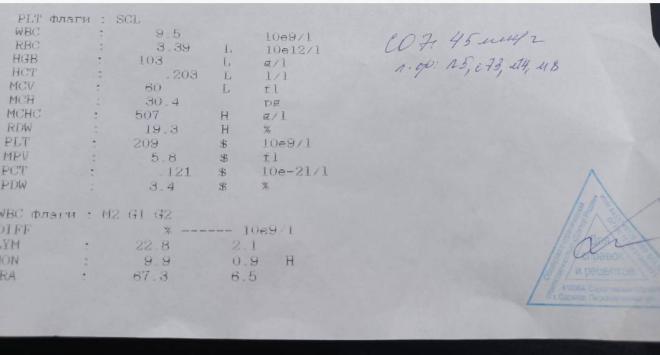 PLT Флаги : SCL
WBC : 9.5 10e9/l
RBC : 3.39 L 10e12/l
HGB : 103 L g/l
HCT : .203 L l/l
MCV : 60 L fl
MCH : 30.4 pg
MCHC : 507 H g/l
RDW : 19.3 H %
PLT : 209 $ 10e9/l
MPV : 5.8 $ fl
PCT : .121 $ 10e-21/l
PDW : 3.4 $ %
WBC Флаги : M2 G1 G2
DIFF % ------ 10e9/l
LYM : 22.8 2.1
MON : 9.9 0.9 H
RA : 67.3 6.5
СОЭ 45 мм/ч
и рецептов